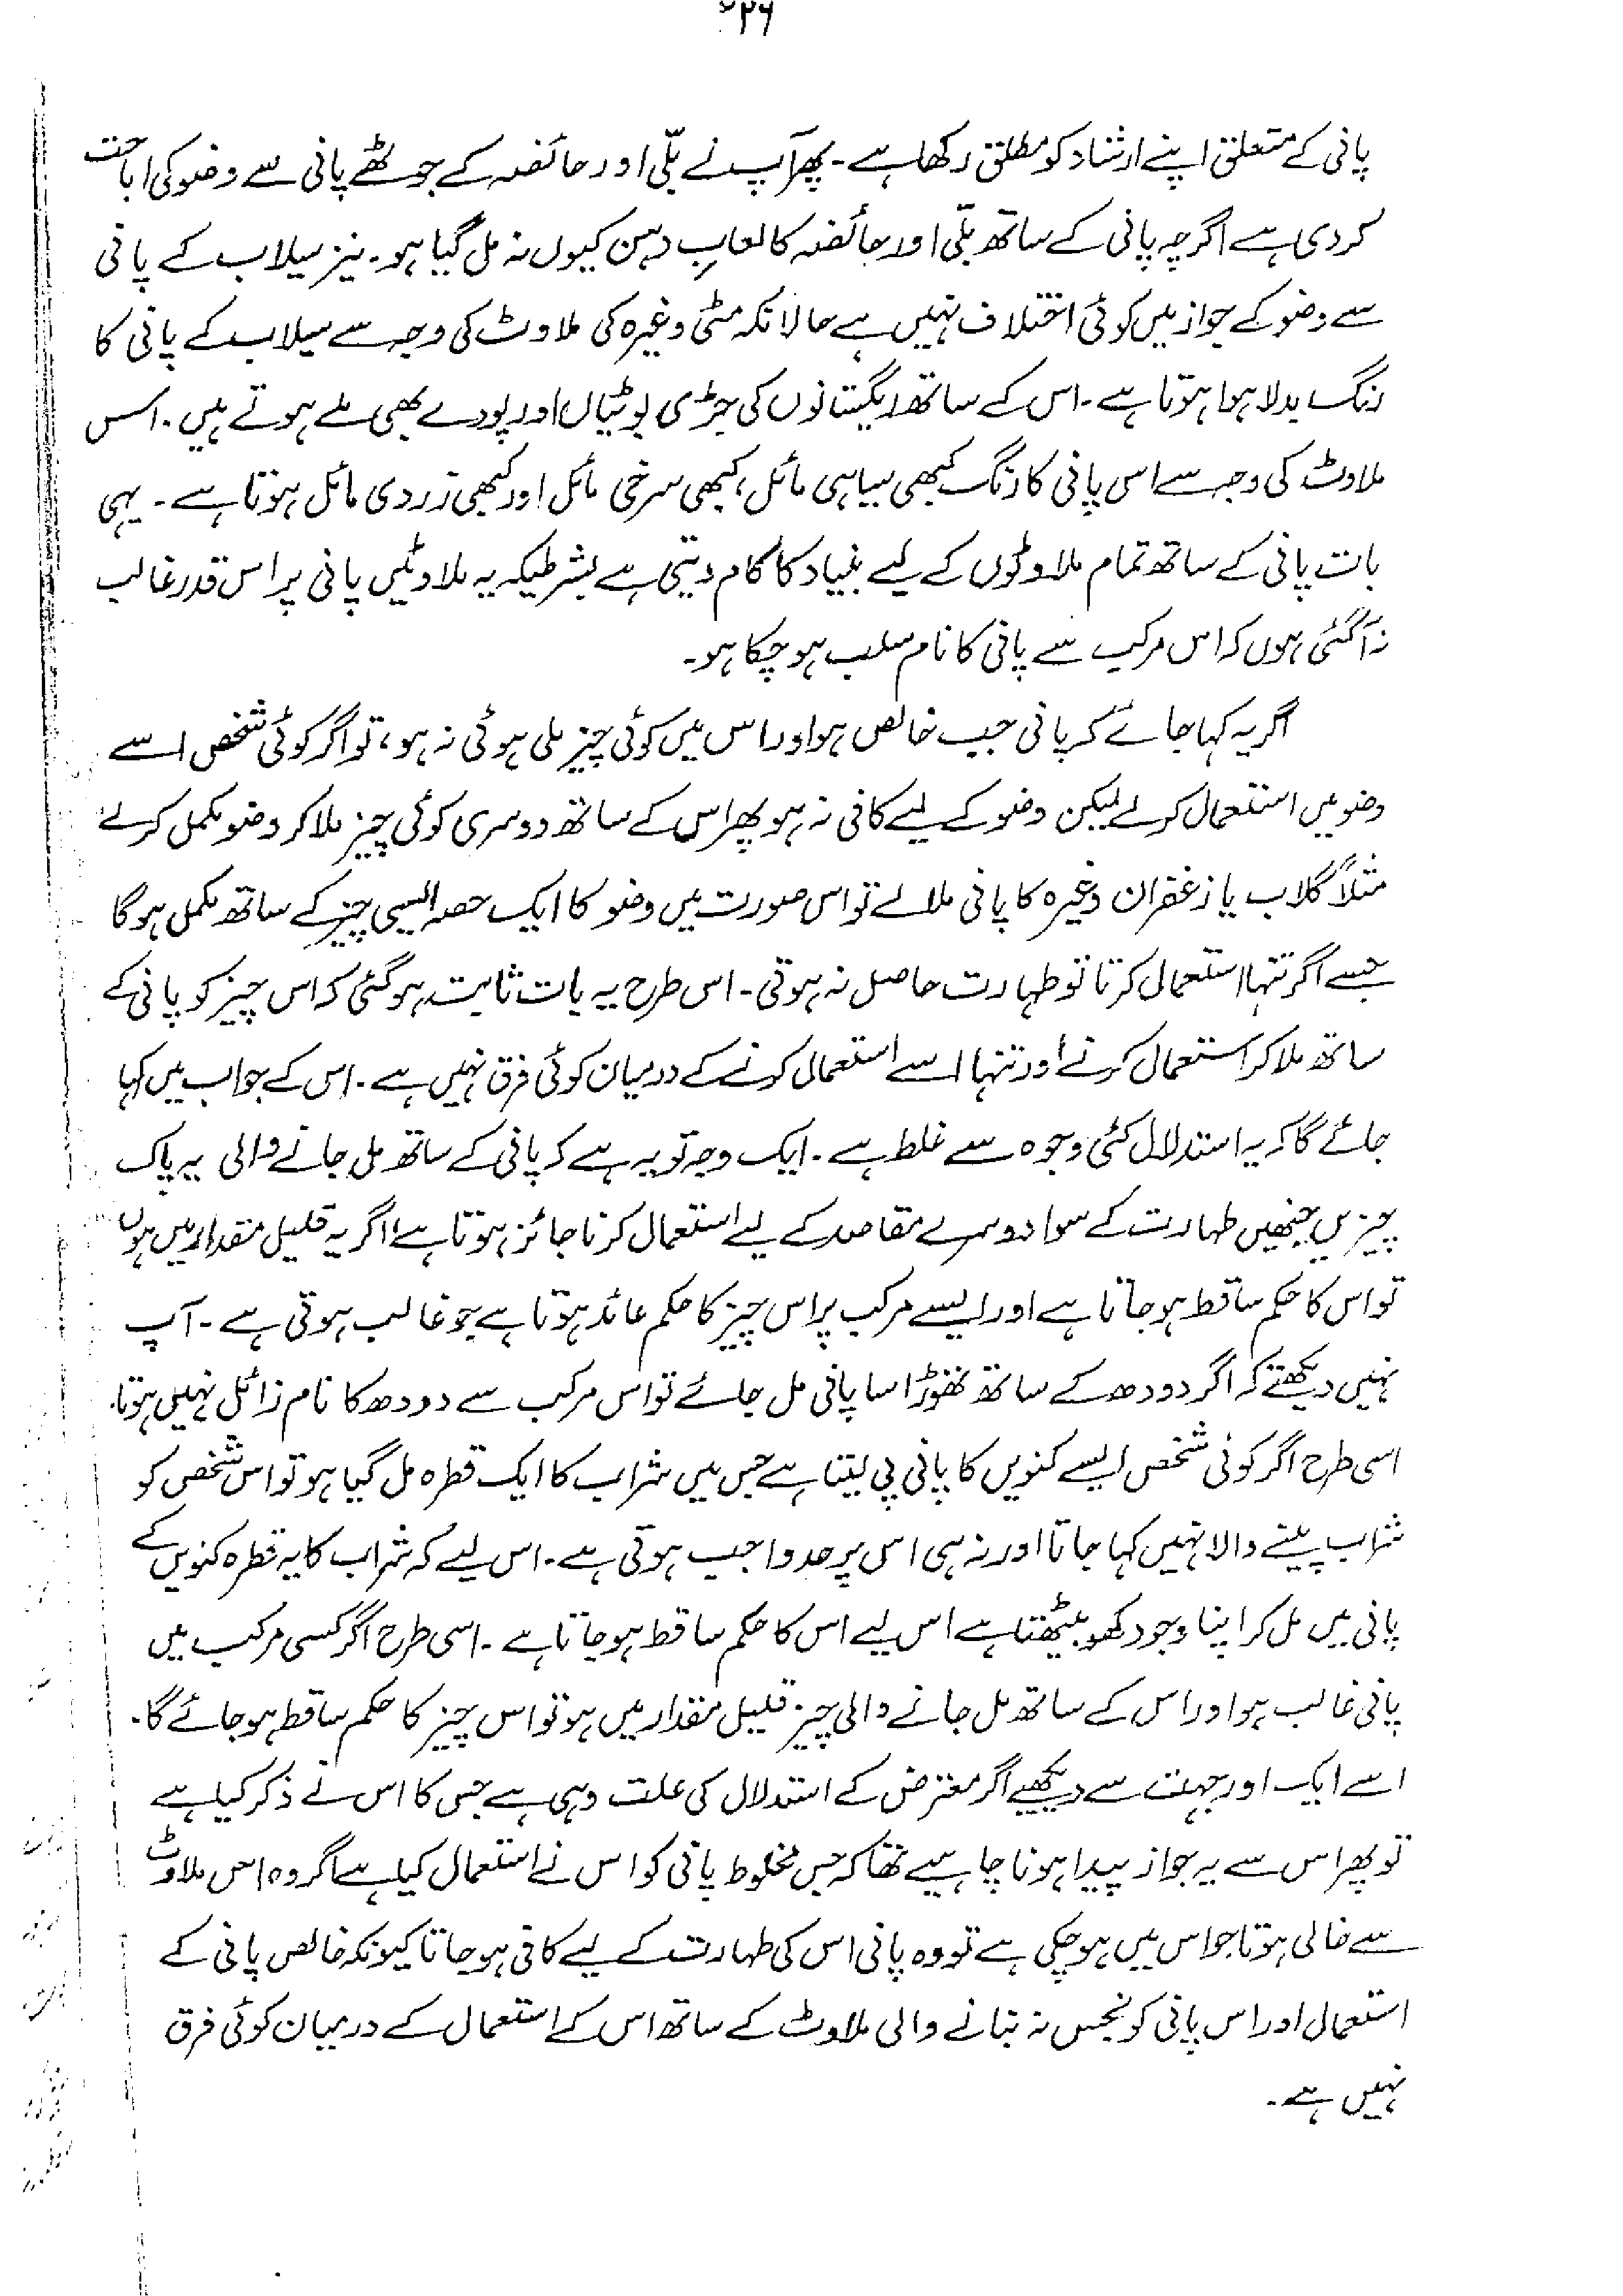 پانی کے متعلق اپنے ارشاد کو مطلق رکھا ہے۔ پھر آپ نے بلّی اور حائضہ کے جوٹھے پانی سے وضو کی اباحت
کر دی ہے اگرچہ پانی کے ساتھ بلّی اور حائضہ کا لعابِ دہن کیوں نہ مل گیا ہو۔ نیز سیلاب کے پانی
سے وضو کے جواز میں کوئی اختلاف نہیں ہے حالانکہ مٹی وغیرہ کی ملاوٹ کی وجہ سے سیلاب کے پانی کا
رنگ بدلا ہوا ہوتا ہے۔ اس کے ساتھ ریگستانوں کی جڑی بوٹیاں اور پودے بھی ملے ہوتے ہیں۔ اس
ملاوٹ کی وجہ سے اس پانی کا رنگ کبھی سیاہی مائل، کبھی سرخی مائل اور کبھی زردی مائل ہوتا ہے۔ یہی
بات پانی کے ساتھ تمام ملاوٹوں کے لیے بنیاد کا کام دیتی ہے بشرطیکہ یہ ملاوٹیں پانی پر اس قدر غالب
نہ آگئی ہوں کہ اس مرکب سے پانی کا نام سلب ہو چکا ہو۔
اگر یہ کہا جائے کہ پانی جب خالص ہو اور اس میں کوئی چیز ملی ہوئی نہ ہو، تو اگر کوئی شخص اسے
وضو میں استعمال کرلے لیکن وضو کے لیے کافی نہ ہو پھر اس کے ساتھ دوسری کوئی چیز ملا کر وضو مکمل کرلے
مثلاً گلاب یا زعفران وغیرہ کا پانی ملالے تو اس صورت میں وضو کا ایک حصہ ایسی چیز کے ساتھ مکمل ہوگا
جسے اگر تنہا استعمال کرتا تو طہارت حاصل نہ ہوتی۔ اس طرح یہ بات ثابت ہوگئی کہ اس چیز کو پانی کے
ساتھ ملا کر استعمال کرنے اور تنہا اسے استعمال کرنے کے درمیان کوئی فرق نہیں ہے۔ اس کے جواب میں کہا
جائے گا کہ یہ استدلال کئی وجوہ سے غلط ہے۔ ایک وجہ تو یہ ہے کہ پانی کے ساتھ مل جانے والی یہ پاک
چیزیں جنھیں طہارت کے سوا دوسرے مقاصد کے لیے استعمال کرنا جائز ہوتا ہے اگر یہ قلیل مقدار میں ہوں
تو اس کا حکم ساقط ہو جاتا ہے اور ایسے مرکب پر اس چیز کا حکم عائد ہوتا ہے جو غالب ہوتی ہے۔ آپ
نہیں دیکھتے کہ اگر دودھ کے ساتھ تھوڑا سا پانی مل جائے تو اس مرکب سے دودھ کا نام زائل نہیں ہوتا۔
اسی طرح اگر کوئی شخص ایسے کنویں کا پانی پی لیتا ہے جس میں شراب کا ایک قطرہ مل گیا ہو تو اس شخص کو
شراب پینے والا نہیں کہا جاتا اور نہ ہی اس پر حد واجب ہوتی ہے۔ اس لیے کہ شراب کا یہ قطرہ کنویں کے
پانی میں مل کر اپنا وجود کھو بیٹھتا ہے اس لیے اس کا حکم ساقط ہو جاتا ہے۔ اسی طرح اگر کسی مرکب میں
پانی غالب ہو اور اس کے ساتھ مل جانے والی چیز قلیل مقدار میں ہو تو اس چیز کا حکم ساقط ہو جائے گا۔
اسے ایک اور جہت سے دیکھیے اگر معترض کے استدلال کی علت وہی ہے جس کا اس نے ذکر کیا ہے
تو پھر اس سے یہ جواز پیدا ہونا چاہیے تھا کہ جس مخلوط پانی کو اس نے استعمال کیا ہے اگر وہ اس ملاوٹ
سے خالی ہوتا جو اس میں ہو چکی ہے تو وہ پانی اس کی طہارت کے لیے کافی ہو جاتا کیونکہ خالص پانی کے
استعمال اور اس پانی کو نجس نہ بنانے والی ملاوٹ کے ساتھ اس کے استعمال کے درمیان کوئی فرق
نہیں ہے۔